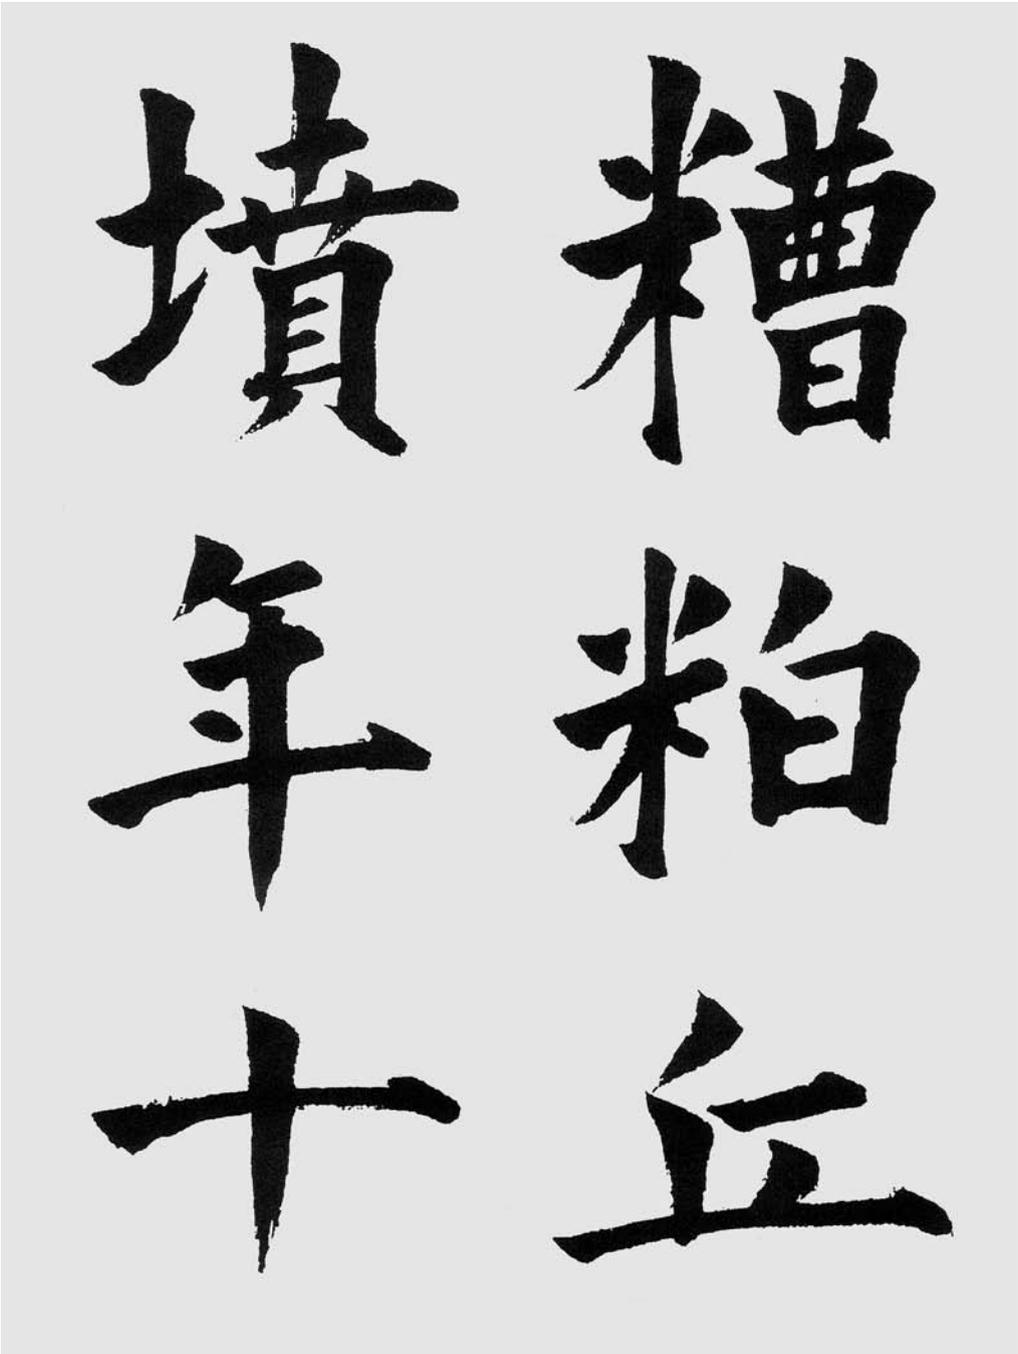 糟粕丘
墳年十